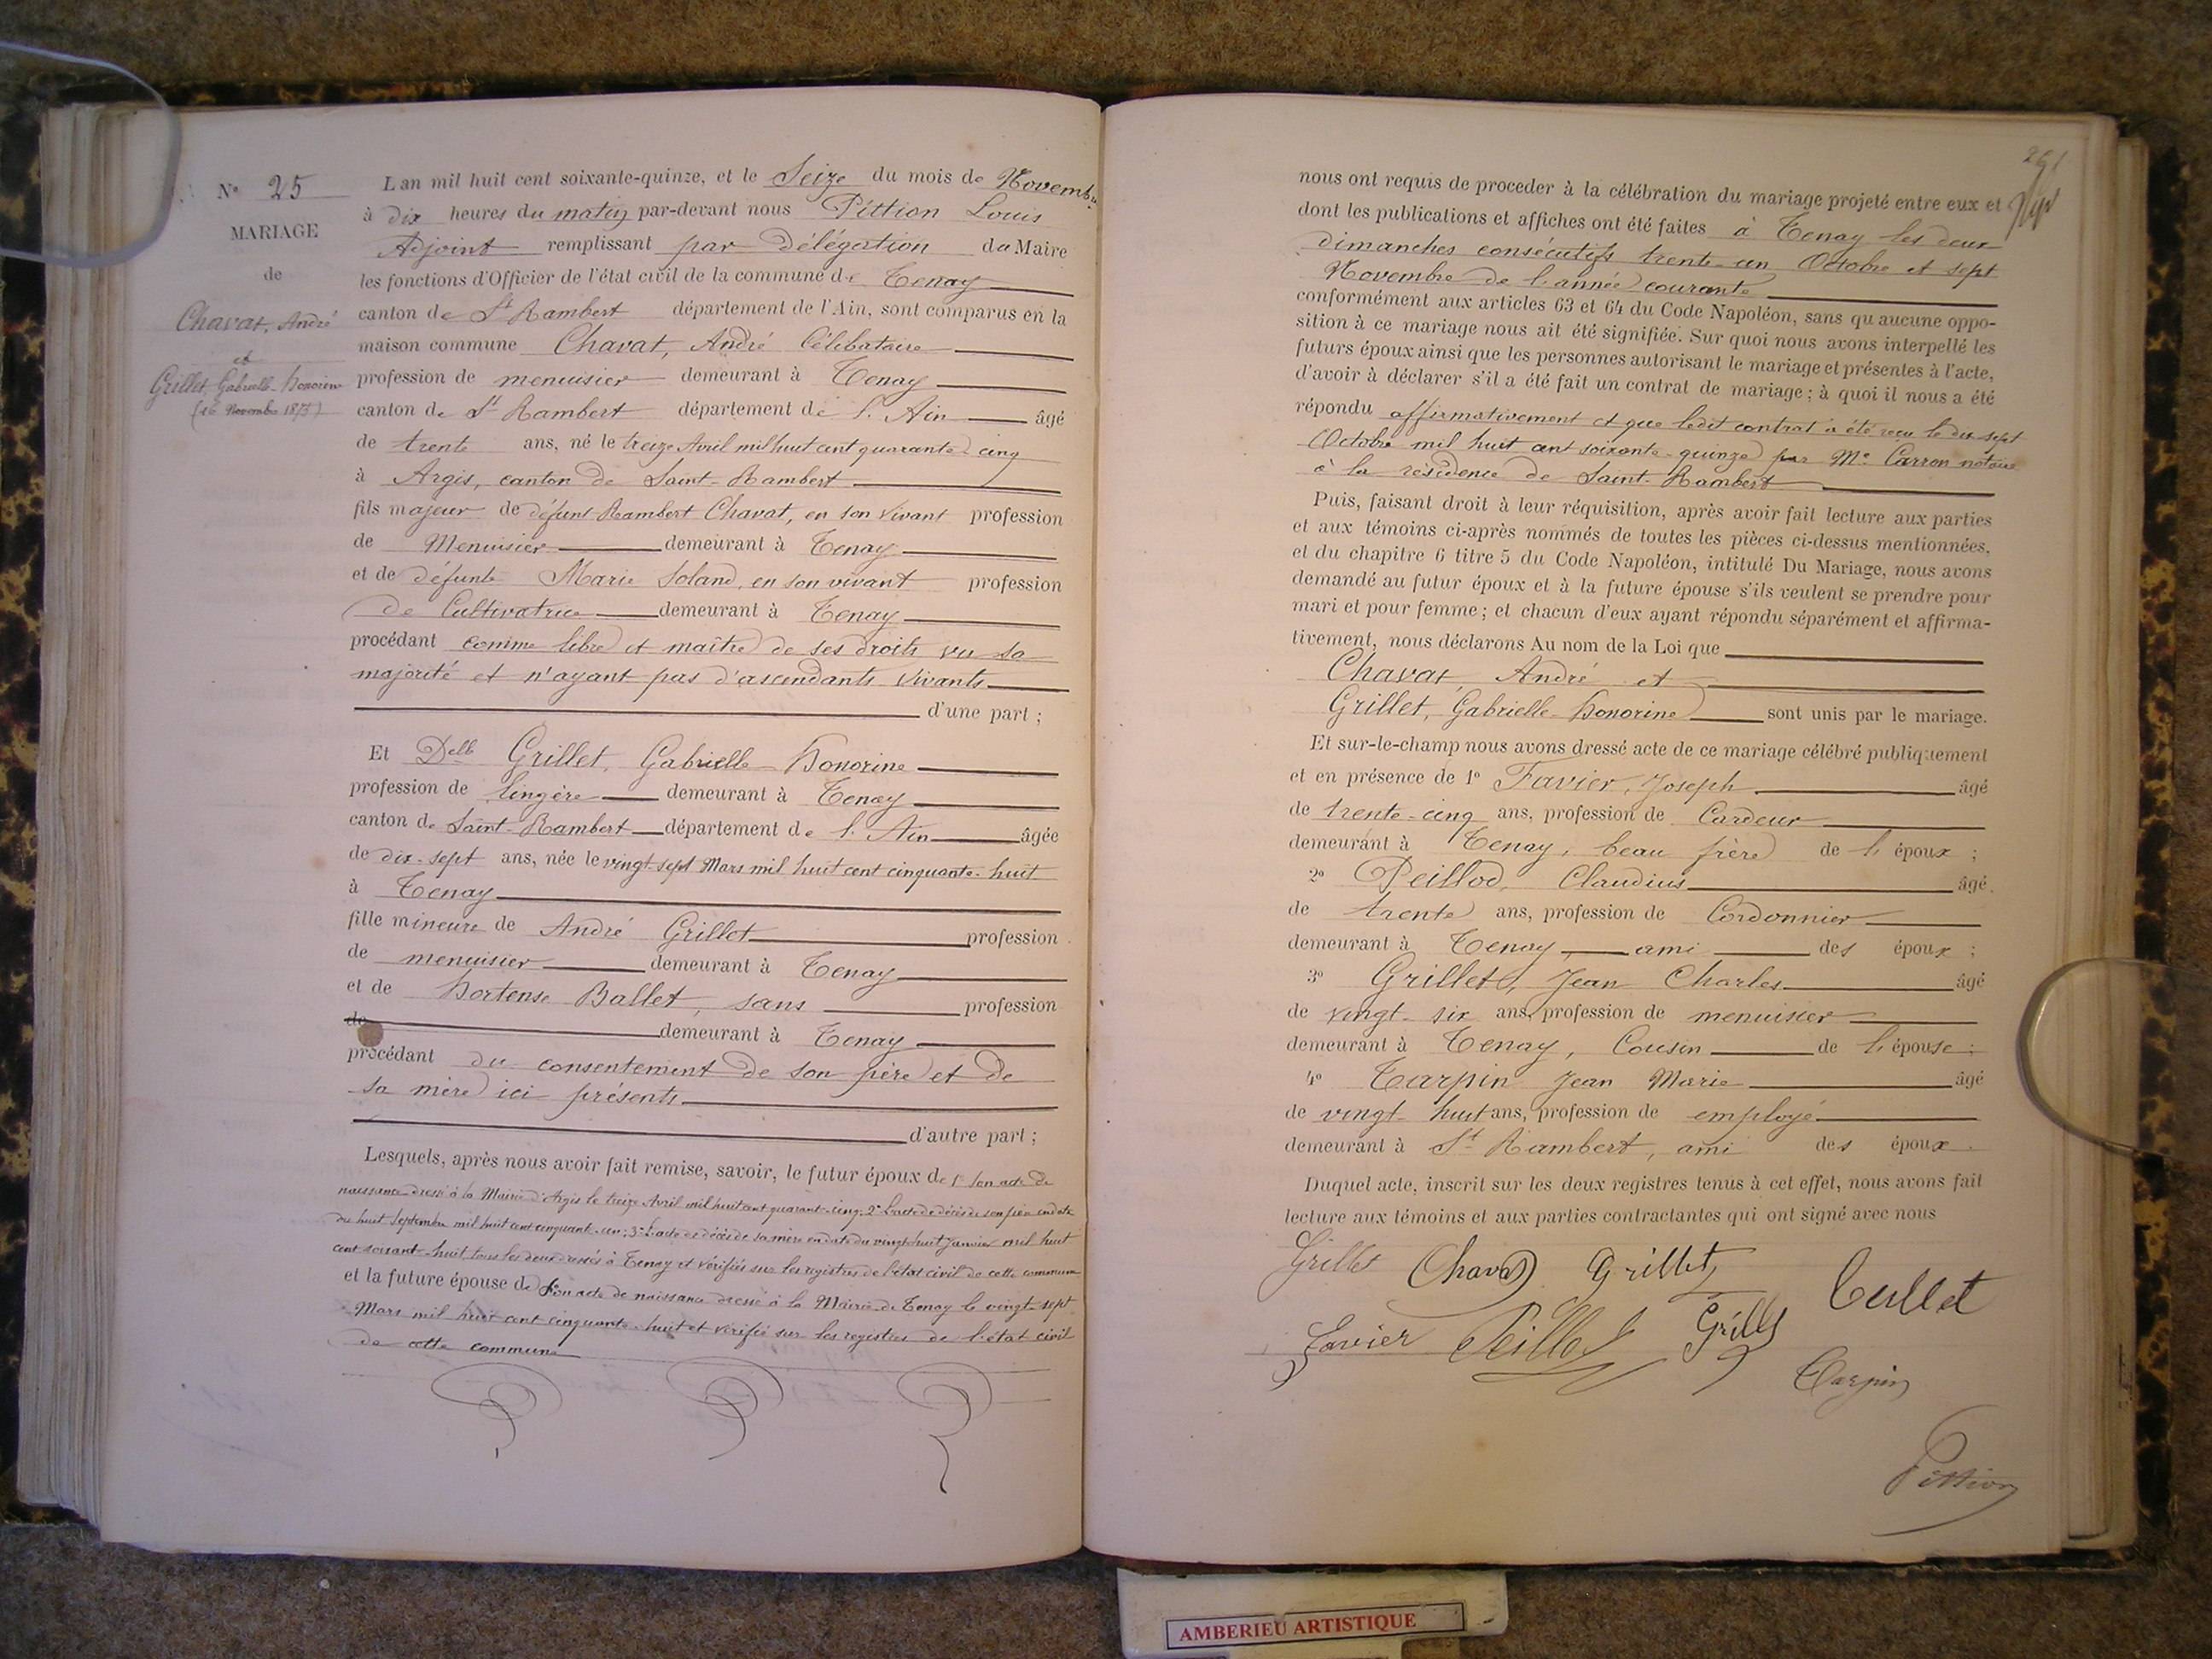 N° 25
MARIAGE
de
Chavat, André
et
Grillet, Gabrielle-Honorine
(16 Novembre 1875)
L'an mil huit cent soixante-quinze, et le Seize du mois de Novembre
à dix heures du matin par-devant nous Pittion Louis
Adjoint remplissant par délégation du Maire
les fonctions d'Officier de l'état civil de la commune de Tenay
canton de St Rambert département de l'Ain, sont comparus en la
maison commune Chavat, André Célibataire
profession de menuisier demeurant à Tenay
canton de St Rambert département de l'Ain âgé
de trente ans, né le treize Avril mil huit cent quarante-cinq
à Argis, canton de Saint-Rambert
fils majeur de défunt Rambert Chavat, en son vivant profession
de Menuisier demeurant à Tenay
et de défunte Marie Soland, en son vivant profession
de Cultivatrice demeurant à Tenay
procédant comme libre et maître de ses droits vu sa
majorité et n'ayant pas d'ascendants vivants
d'une part ;
Et Delle Grillet, Gabrielle-Honorine
profession de lingère demeurant à Tenay
canton de Saint-Rambert département de l'Ain âgée
de dix-sept ans, née le vingt-sept Mars mil huit cent cinquante-huit
à Tenay
fille mineure de André Grillet profession
de menuisier demeurant à Tenay
et de Hortense Ballet, sans profession
de demeurant à Tenay
procédant du consentement de son père et de
sa mère ici présents
d'autre part ;
Lesquels, après nous avoir fait remise, savoir, le futur époux de 1° son acte de
naissance dressé à la Mairie d'Argis le treize Avril mil huit cent quarante-cinq; 2° l'acte de décès de son père en date
du huit Septembre mil huit cent cinquante-un; 3° l'acte de décès de sa mère en date du vingt-huit Janvier mil huit
cent soixante-huit tous les deux dressés à Tenay et vérifiés sur les registres de l'état civil de cette commune
et la future épouse de son acte de naissance dressé à la Mairie de Tenay le vingt-sept
Mars mil huit cent cinquante-huit et vérifié sur les registres de l'état civil
de cette commune
291
nous ont requis de proceder à la célébration du mariage projeté entre eux et
dont les publications et affiches ont été faites à Tenay les deux
dimanches consécutifs trente-un Octobre et sept
Novembre de l'année courante
conformément aux articles 63 et 64 du Code Napoléon, sans qu'aucune oppo-
sition à ce mariage nous ait été signifiée. Sur quoi nous avons interpellé les
futurs époux ainsi que les personnes autorisant le mariage et présentes à l'acte,
d'avoir à déclarer s'il a été fait un contrat de mariage ; à quoi il nous a été
répondu affirmativement et que ledit contrat a été reçu le dix-sept
Octobre mil huit cent soixante-quinze par Me Carron notaire
à la résidence de Saint-Rambert
Puis, faisant droit à leur réquisition, après avoir fait lecture aux parties
et aux témoins ci-après nommés de toutes les pièces ci-dessus mentionnées,
et du chapitre 6 titre 5 du Code Napoléon, intitulé Du Mariage, nous avons
demandé au futur époux et à la future épouse s'ils veulent se prendre pour
mari et pour femme ; et chacun d'eux ayant répondu séparément et affirma-
tivement, nous déclarons Au nom de la Loi que
Chavat, André et
Grillet, Gabrielle-Honorine sont unis par le mariage.
Et sur-le-champ nous avons dressé acte de ce mariage célébré publiquement
et en présence de 1° Favier, Joseph âgé
de trente-cinq ans, profession de Cardeur
demeurant à Tenay, beau frère de l'époux ;
2° Peillod, Claudius âgé
de trente ans, profession de Cordonnier
demeurant à Tenay ami des époux ;
3° Grillet, Jean Charles âgé
de vingt-six ans, profession de menuisier
demeurant à Tenay, Cousin de l'épouse ;
4° Tarpin Jean Marie âgé
de vingt-huit ans, profession de employé
demeurant à St Rambert, ami des époux.
Duquel acte, inscrit sur les deux registres tenus à cet effet, nous avons fait
lecture aux témoins et aux parties contractantes qui ont signé avec nous
Grillet Chavat Grillet
Favier Peillod Grillet
Tarpin
Pittion
AMBERIEU ARTISTIQUE